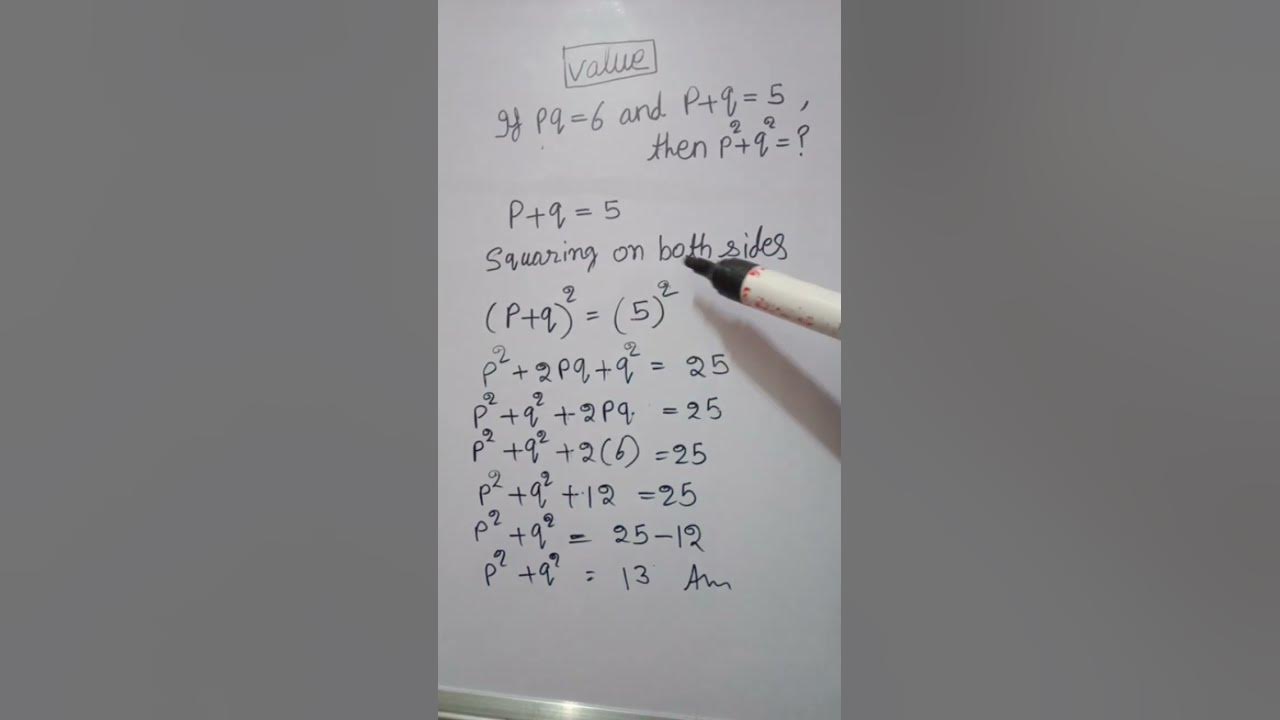 value
If pq = 6 and p+q = 5 ,
then p²+q² = ?
p+q = 5
Squaring on both sides
(p+q)² = (5)²
p² + 2pq + q² = 25
p² + q² + 2pq = 25
p² + q² + 2(6) = 25
p² + q² + 12 = 25
p² + q² = 25 - 12
p² + q² = 13 Ans